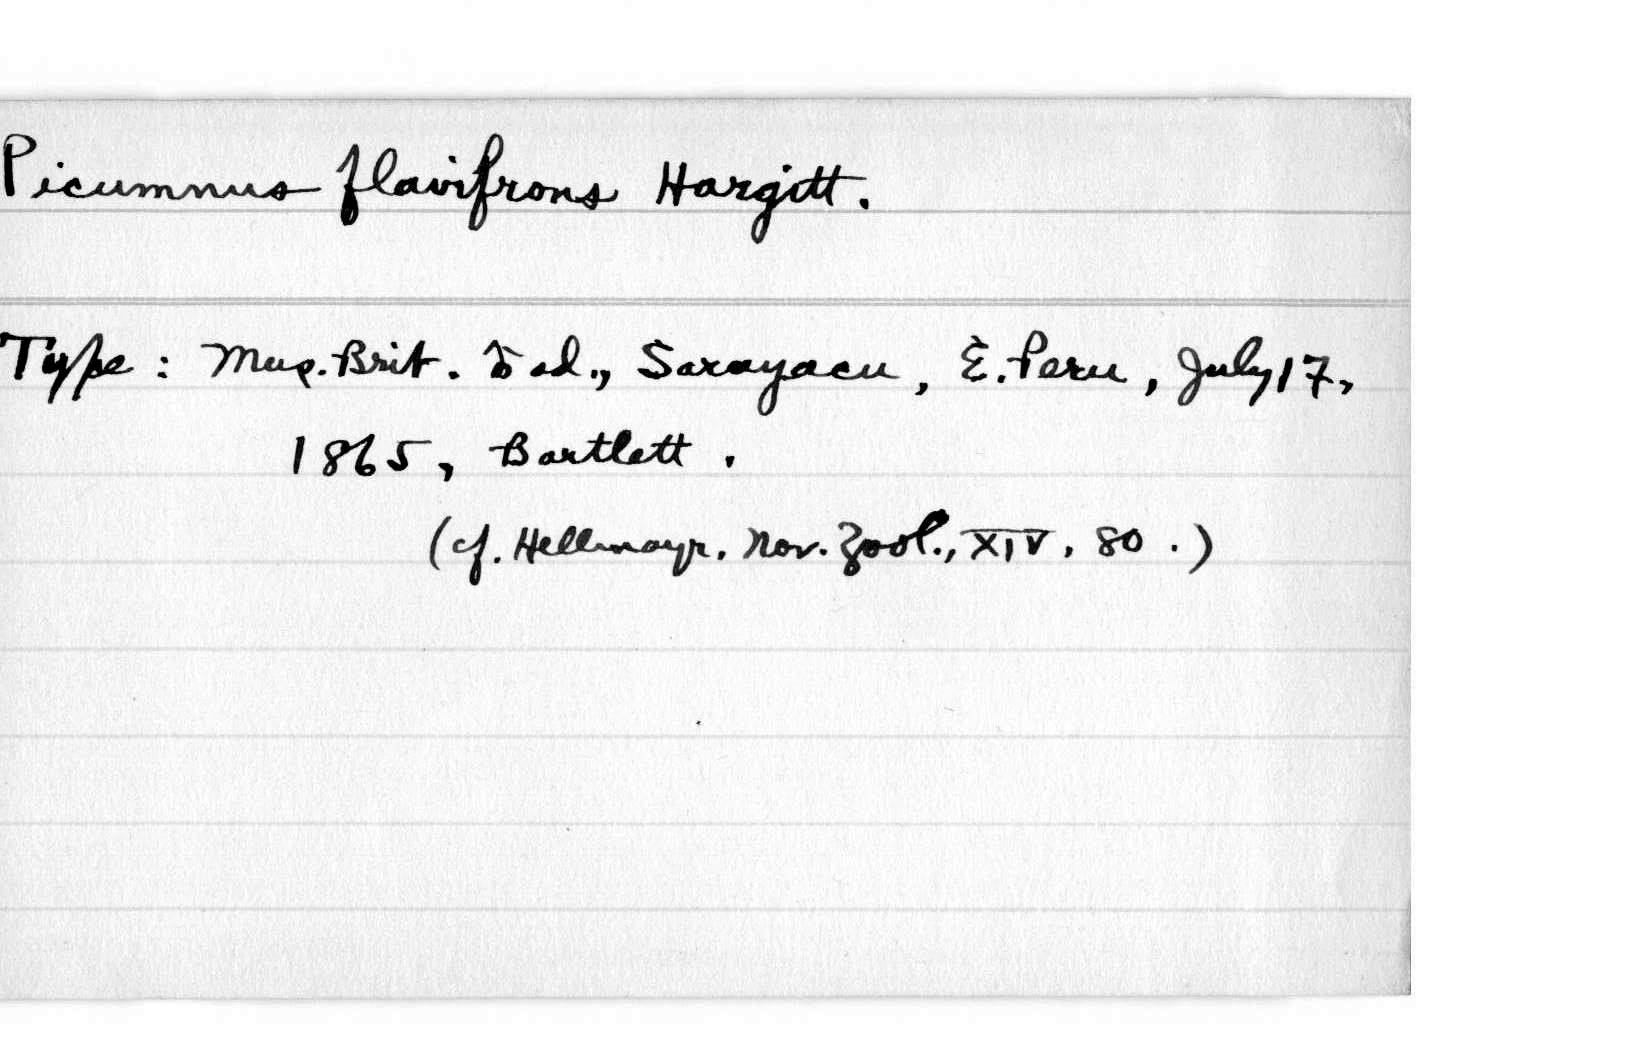 Picumnus flavifrons Hargitt.
Type : Mus. Brit. ♂ ad., Sarayacu, E. Peru, July 17,
1865, Bartlett.
(cf. Hellmayr. Nov. Zool., XIV, 80.)